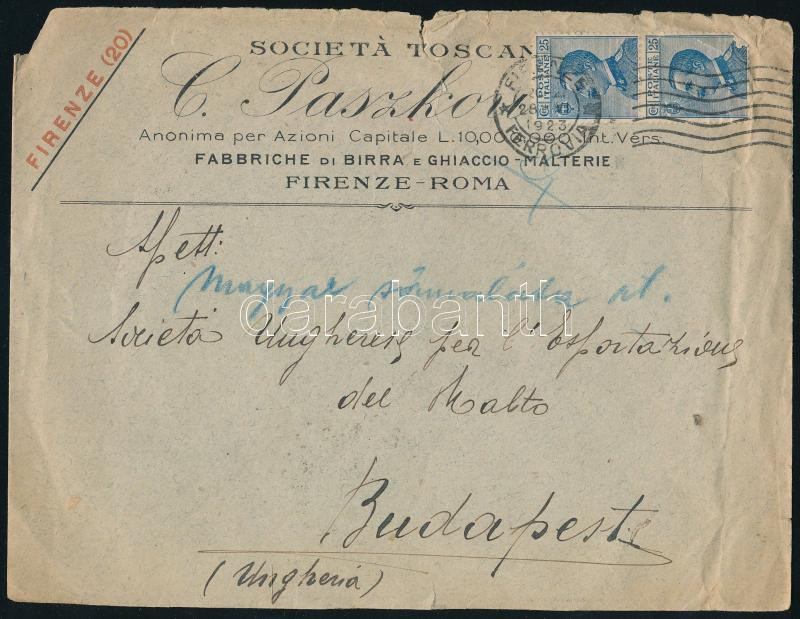 FIRENZE (20)
SOCIETÀ TOSCAN
C. Paszkow
Anonima per Azioni Capitale L. 10,00 Int. Vers.
FABBRICHE DI BIRRA E GHIACCIO-MALTERIE
FIRENZE-ROMA
POSTE ITALIANE 25
POSTE ITALIANE 25
1923
FERROVIA
Spett:
Magyar
darabanth
Società Ungherese per l'Esportazione
del Malto
Budapest
(Ungheria)